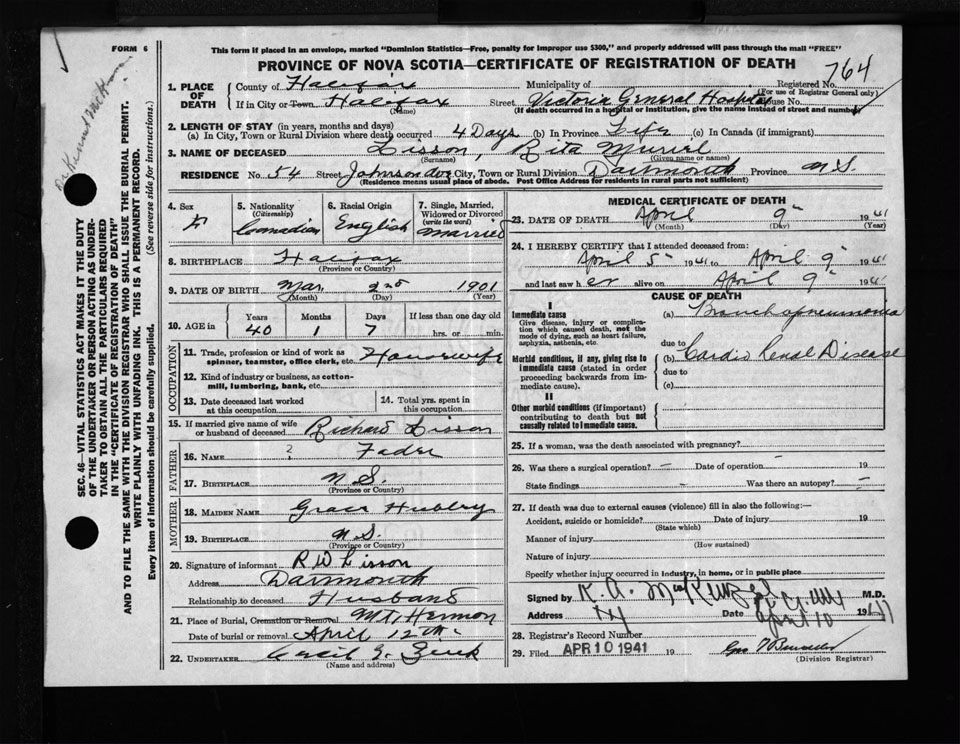 FORM 6
This form if placed in an envelope, marked "Dominion Statistics—Free, penalty for improper use $300," and properly addressed will pass through the mail "FREE"
PROVINCE OF NOVA SCOTIA—CERTIFICATE OF REGISTRATION OF DEATH
764
1. PLACE OF DEATH County of Halifax Municipality of Registered No. (For use of Registrar General only)
If in City or Town Halifax (Name) Street Victoria General Hospital House No.
(If death occurred in a hospital or institution, give the name instead of street and number)
2. LENGTH OF STAY (in years, months and days)
(a) In City, Town or Rural Division where death occurred 4 Days (b) In Province Life (c) In Canada (if immigrant)
3. NAME OF DECEASED Lisson, Rita Muriel
(Surname) (Given name or names)
RESIDENCE No. 54 Street Johnson City, Town or Rural Division Dartmouth Province N.S.
(Residence means usual place of abode. Post Office Address for residents in rural parts not sufficient)
4. Sex F
5. Nationality (Citizenship) Canadian
6. Racial Origin English
7. Single, Married, Widowed or Divorced (write the word) Married
8. BIRTHPLACE Halifax
(Province or Country)
9. DATE OF BIRTH Mar. 2nd 1901
(Month) (Day) (Year)
10. AGE in Years 40 Months 1 Days 7 If less than one day hrs. or min.
OCCUPATION
11. Trade, profession or kind of work as spinner, teamster, office clerk, etc. Housewife
12. Kind of industry or business, as cotton-mill, lumbering, bank, etc.
13. Date deceased last worked at this occupation
14. Total yrs. spent in this occupation
15. If married give name of wife or husband of deceased Richard Lisson
FATHER
16. NAME ? Fader
17. BIRTHPLACE N.S.
(Province or Country)
MOTHER
18. MAIDEN NAME Grace Hubley
19. BIRTHPLACE N.S.
(Province or Country)
20. Signature of informant R W Lisson
Address Dartmouth
Relationship to deceased Husband
21. Place of Burial, Cremation or Removal Mt. Hermon
Date of burial or removal April 12th
22. UNDERTAKER Cecil E. Zink
(Name and address)
MEDICAL CERTIFICATE OF DEATH
23. DATE OF DEATH April 9 1941
(Month) (Day) (Year)
24. I HEREBY CERTIFY that I attended deceased from:
April 5 1941 to April 9 1941
and last saw her alive on April 9 1941
CAUSE OF DEATH
I
Immediate cause
Give disease, injury or complication which caused death, not the mode of dying, such as heart failure, asphyxia, asthenia, etc.
(a) Bronchopneumonia
due to
Morbid conditions, if any, giving rise to immediate cause (stated in order proceeding backwards from immediate cause).
(b) Cardio Renal Disease
due to
(c)
II
Other morbid conditions (if important) contributing to death but not causally related to immediate cause.
25. If a woman, was the death associated with pregnancy?
26. Was there a surgical operation? — Date of operation — 19
State findings Was there an autopsy? —
27. If death was due to external causes (violence) fill in also the following:—
Accident, suicide or homicide? Date of injury 19
(State which)
Manner of injury
(How sustained)
Nature of injury
Specify whether injury occurred in industry, in home, or in public place
Signed by K. A. MacKenzie M.D.
Address Date April 10 1941
28. Registrar's Record Number
29. Filed APR 10 1941 19
(Division Registrar)
SEC. 46—VITAL STATISTICS ACT MAKES IT THE DUTY
OF THE UNDERTAKER OR PERSON ACTING AS UNDER-
TAKER TO OBTAIN ALL THE PARTICULARS REQUIRED
IN THE "CERTIFICATE OF REGISTRATION OF DEATH"
AND TO FILE THE SAME WITH THE DIVISION REGISTRAR WHO SHALL ISSUE THE BURIAL PERMIT.
WRITE PLAINLY WITH UNFADING INK. THIS IS A PERMANENT RECORD.
Every item of information should be carefully supplied. (See reverse side for instructions.)